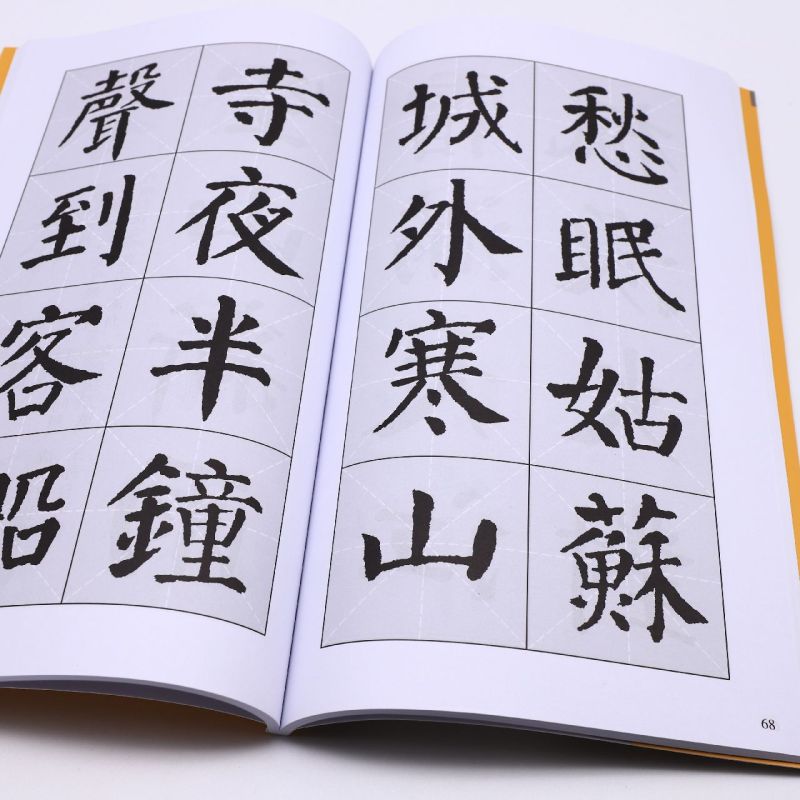 愁眠姑蘇
城外寒山
寺夜半鐘
聲到客船
68